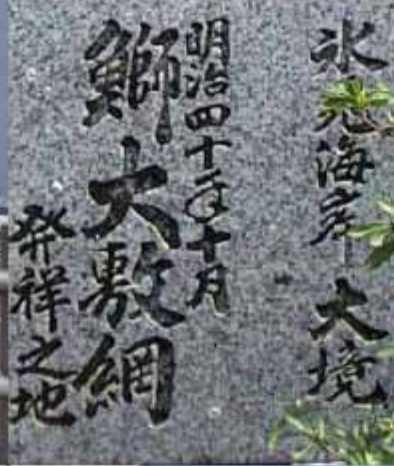 氷見海岸 大境
明治四十年十月
鰤大敷網
発祥之地